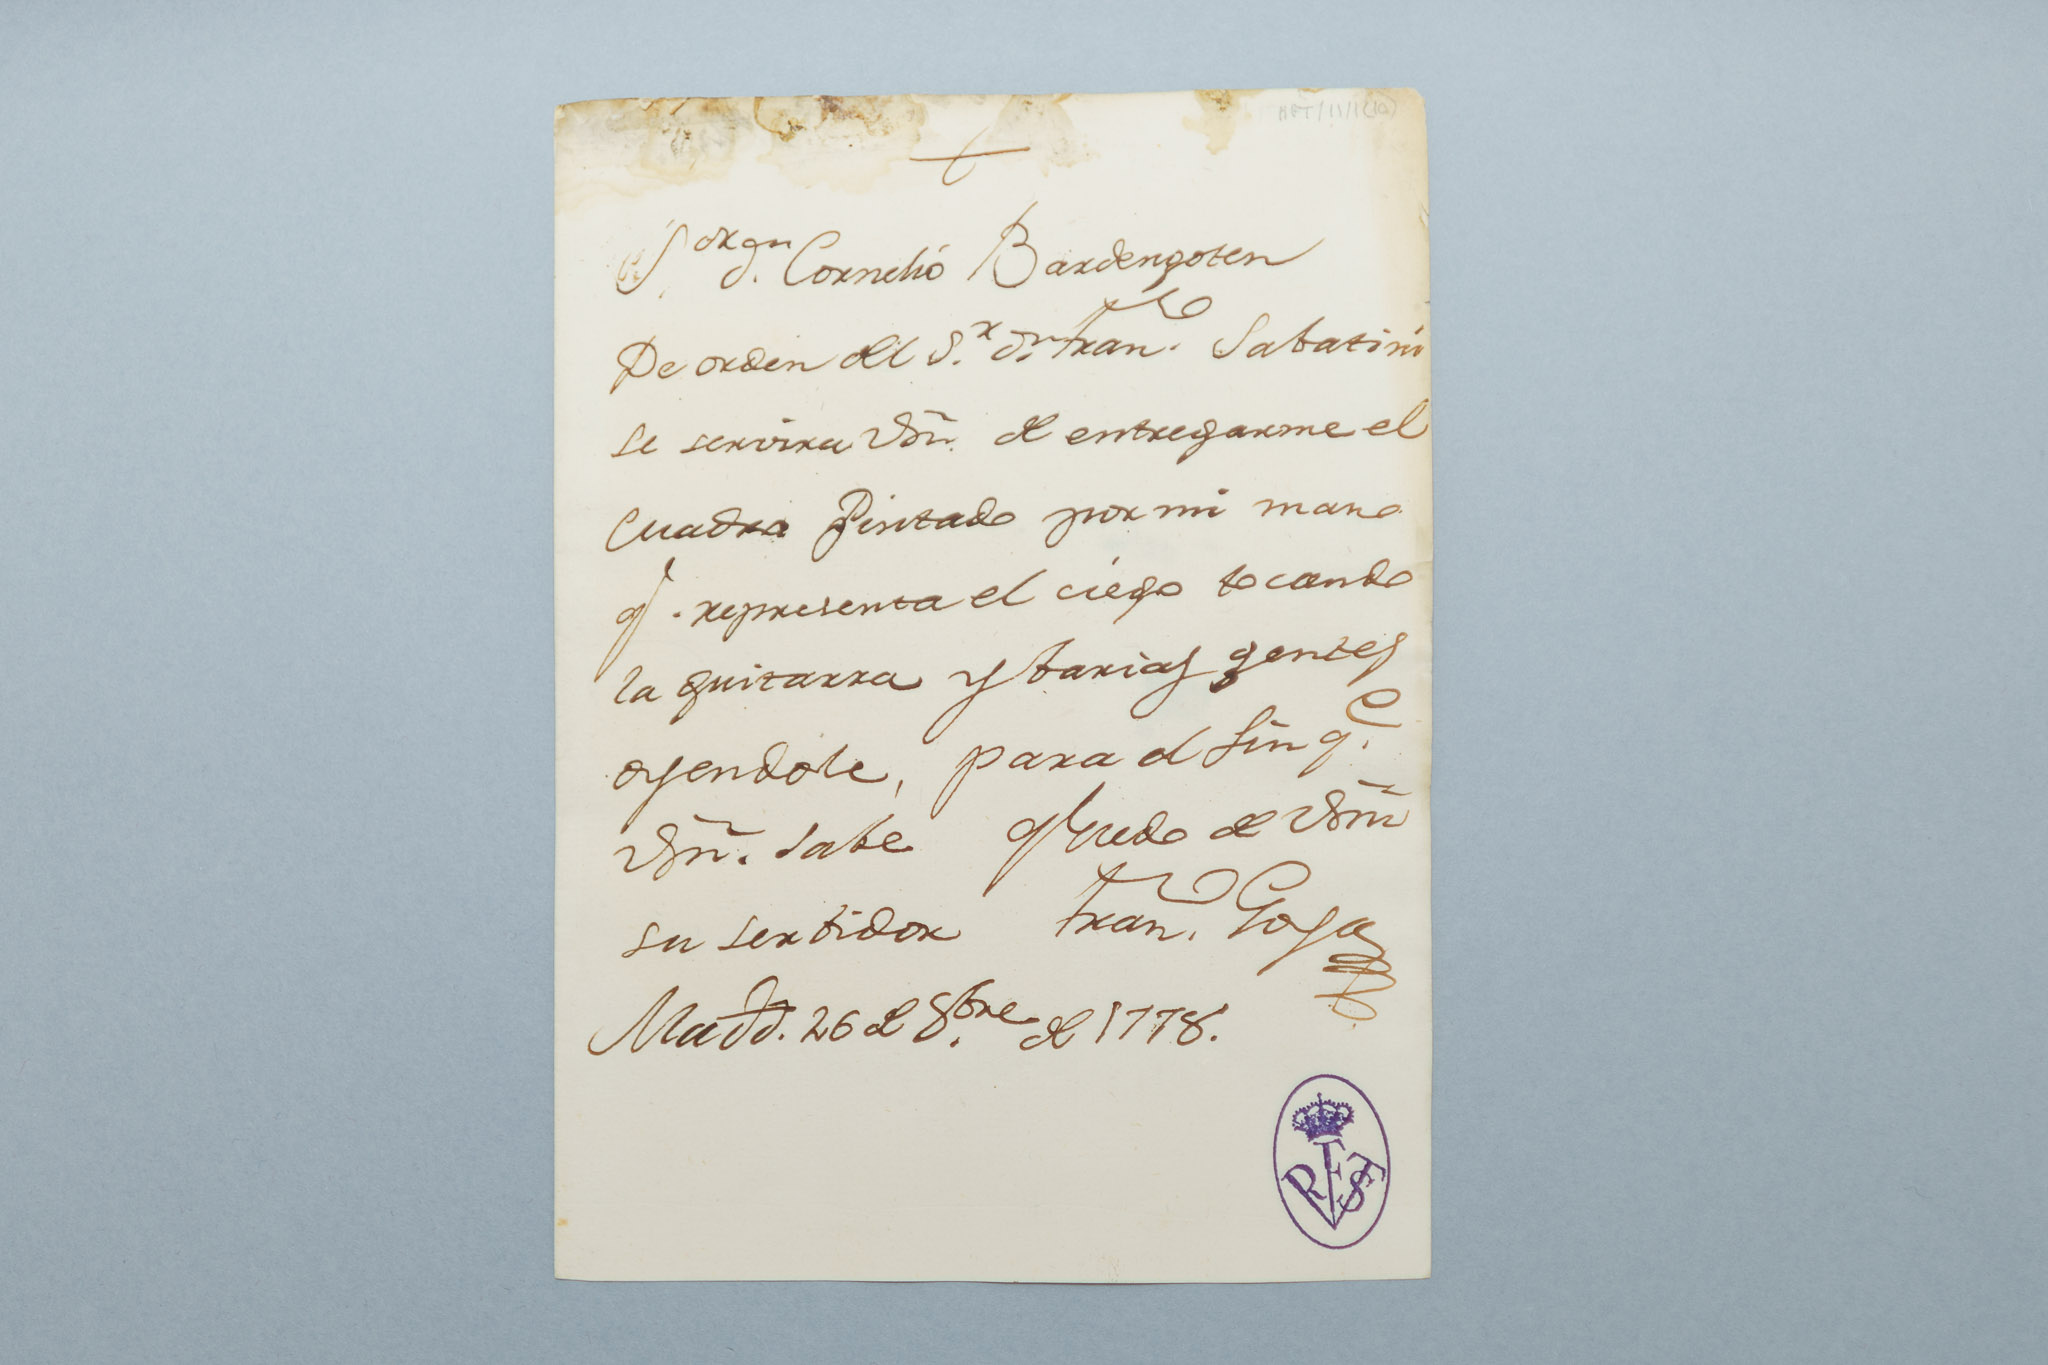 AFT/11/1(10)
+
S.or d.n Cornelio Bardengoten
De orden del S.r d.n Fran.co Sabatini
se servira Vm̃. de entregarme el
cuadro Pintado por mi mano
q.e representa el ciego tocando
la guitarra y barias gentes
oyendole, para el fin q.e
Vm̃. sabe quedo de Vm̃
su serbidor Fran.co Goya
Madd. 26 de 8.bre de 1778.
RFST